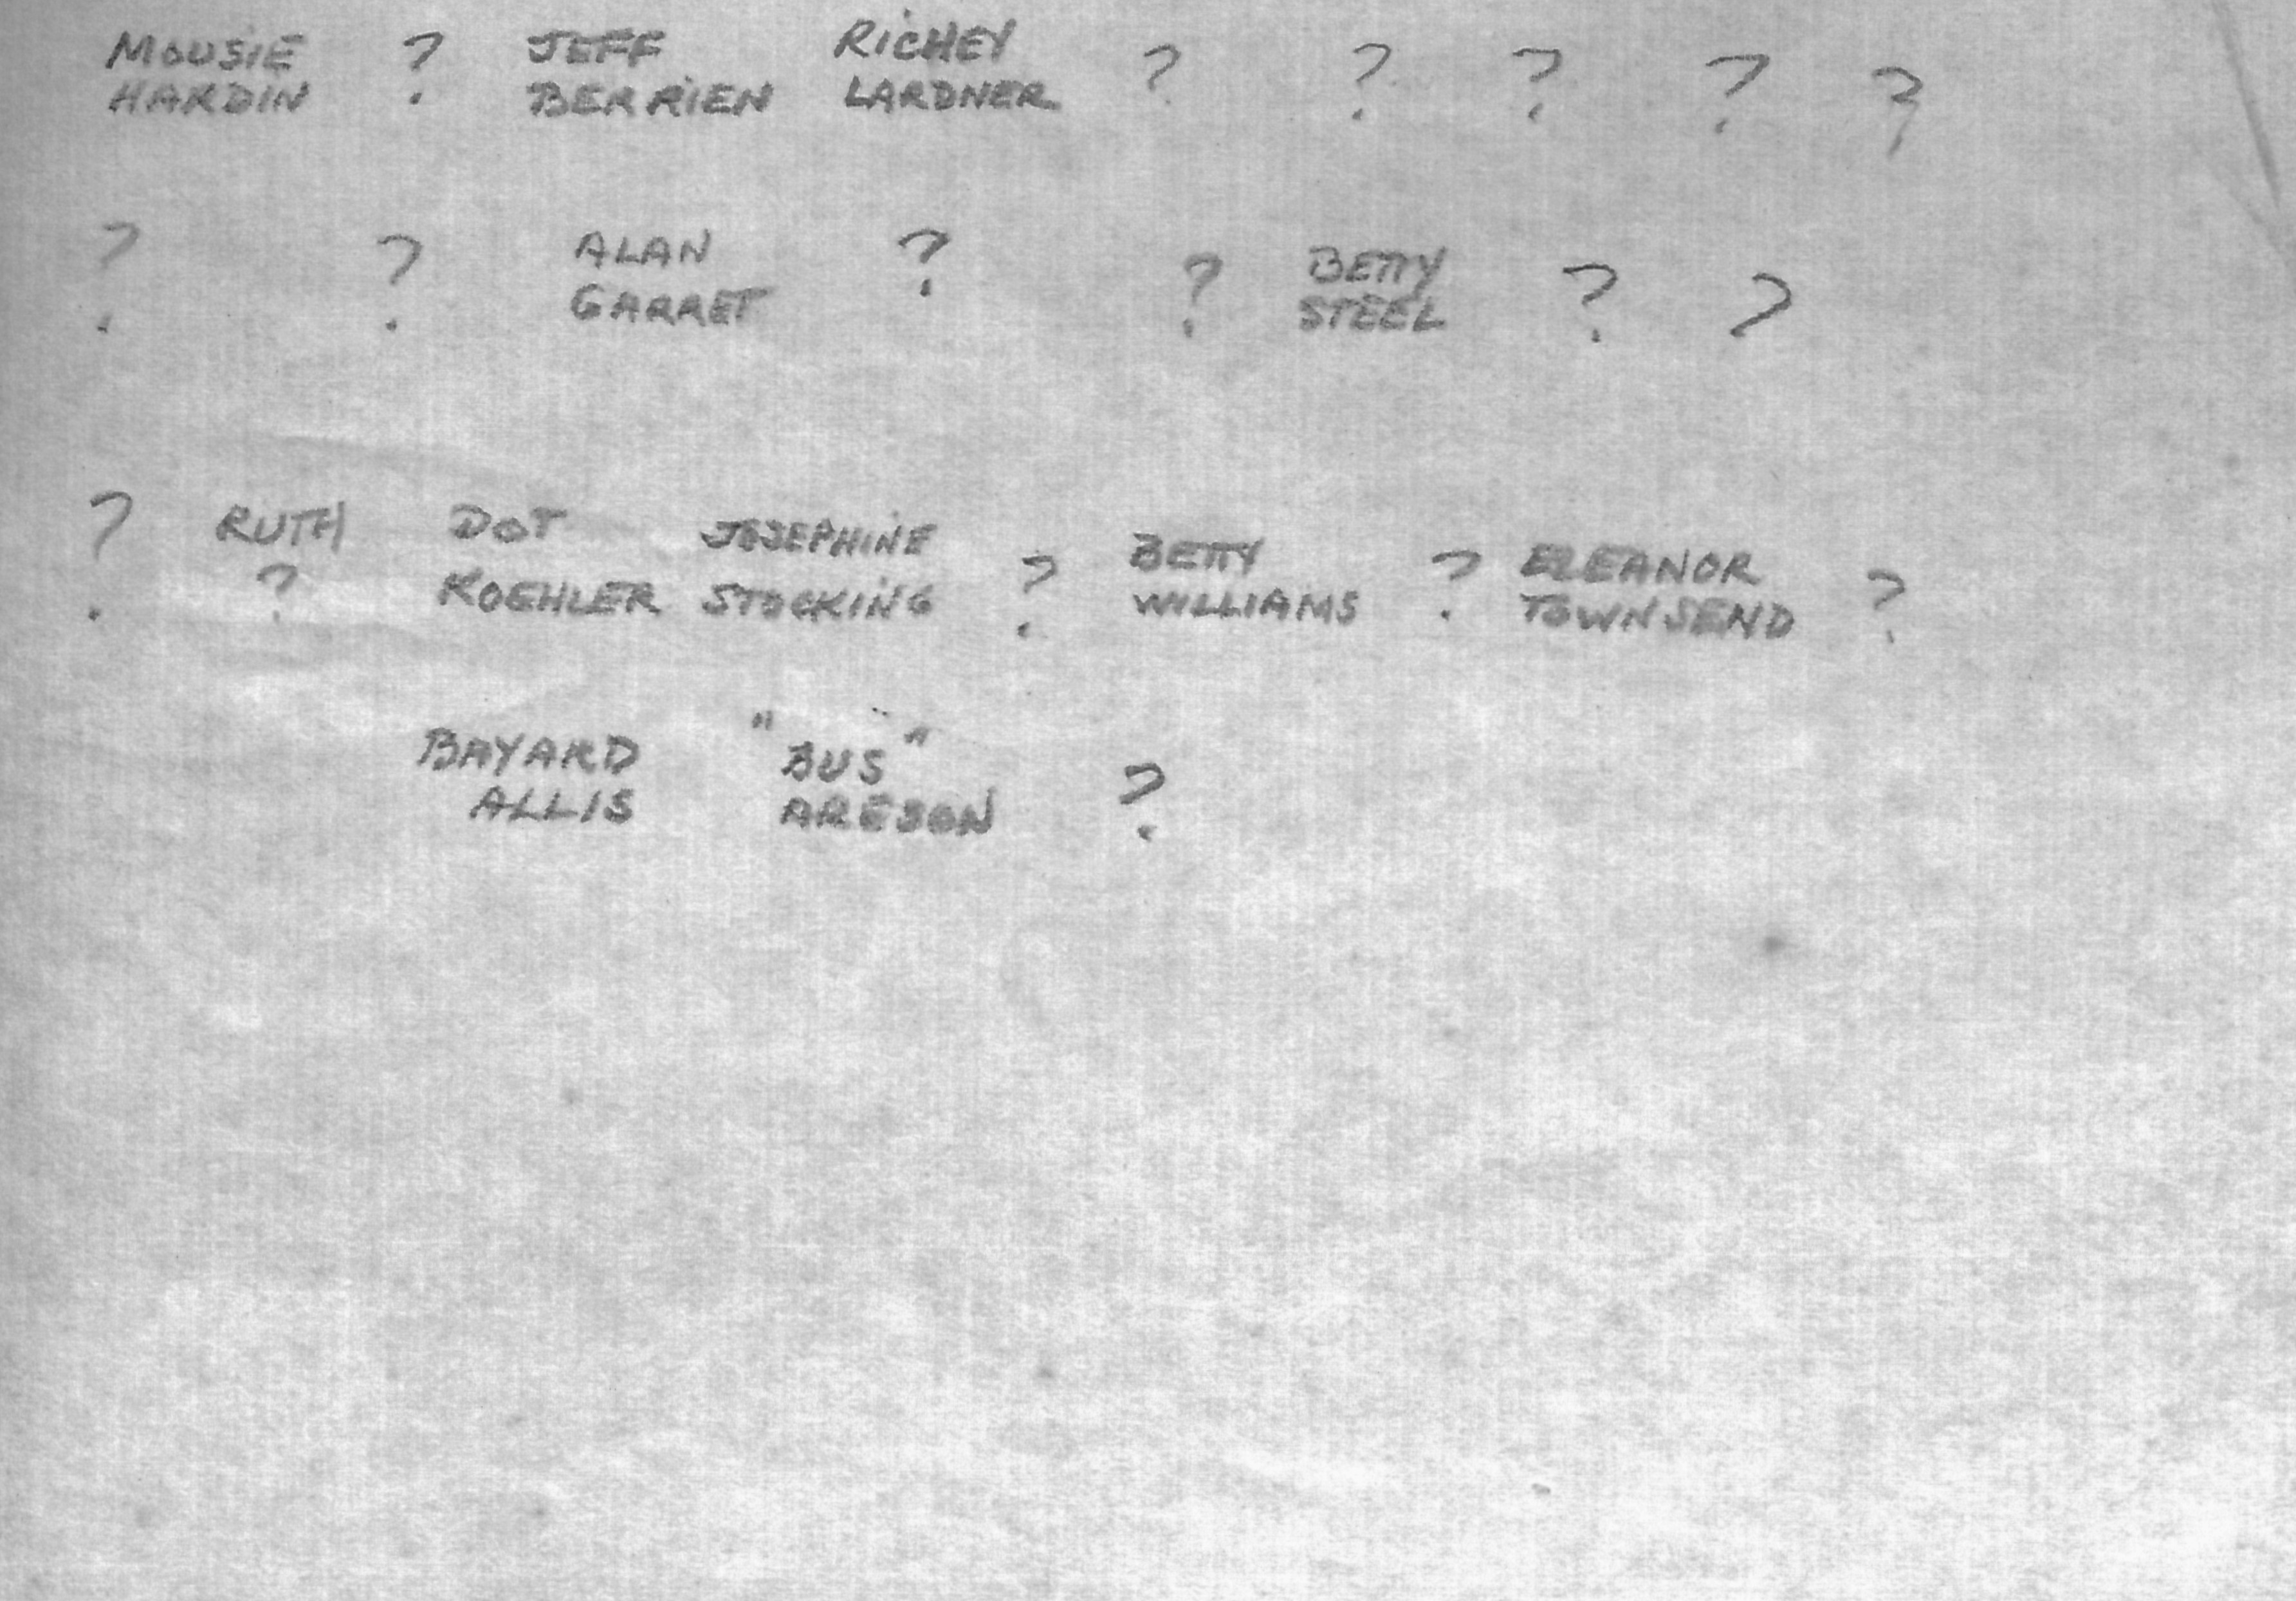 MOUSIE ? JEFF RICHEY ? ? ? ? ?
HARDIN BERRIEN LARDNER
? ? ALAN ? ? BETTY ? ?
GARRET STEEL
? RUTH DOT JOSEPHINE ? BETTY ? ELEANOR ?
? KOEHLER STOCKING WILLIAMS TOWNSEND
BAYARD "BUS" ?
ALLIS ARESON